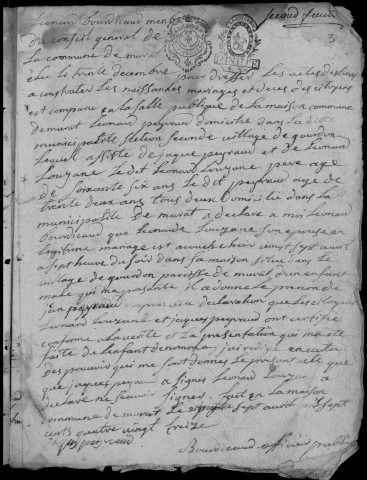 Leonard Bourdicaud membre
second feuille
3
du conseil general de
la commune de murat
elu le trente decembre pour dresser les actes destines
a constater les naissances mariages et deces des citoyens
est comparu en la salle publique de la maison commune
de murat Leonard peyraud domicilié dans la ditte
municipalité section seconde village de gourdon
Lequel assisté de jaque peyraud et de Leonard
Louzane le dit Leonard Louzane pere agé
de soixante six ans le dit peyraud agé de
trente deux ans tous deux domicilié dans la
municipalité de murat a declaré a moi Leonard
Bourdicaud que Leonarde Louzane son epouse en
legitime mariage est acouchee hier vingt sept avril
a sept heure du soir dans sa maison situé dans le
village de gourdon paroisse de murat d'un enfant
male qui ma presanté il a donné le prenom de
jean peyraud declaration que les citoyens
Leonard Louzane et jaques peyraud ont certifié
conforme a la verité et la presentation qui ma eté
faite de l'enfant denommé jai redigé en vertu
des pouvoirs qui me sont donnés le present acte que
jaques peyraud a signés Leonard Louzane a
declaré ne scavoir signer fait en la maison
commune de murat le vingt sept avril mil sept
cents quatre vingt treize
peyraud
Bourdicaud officier public